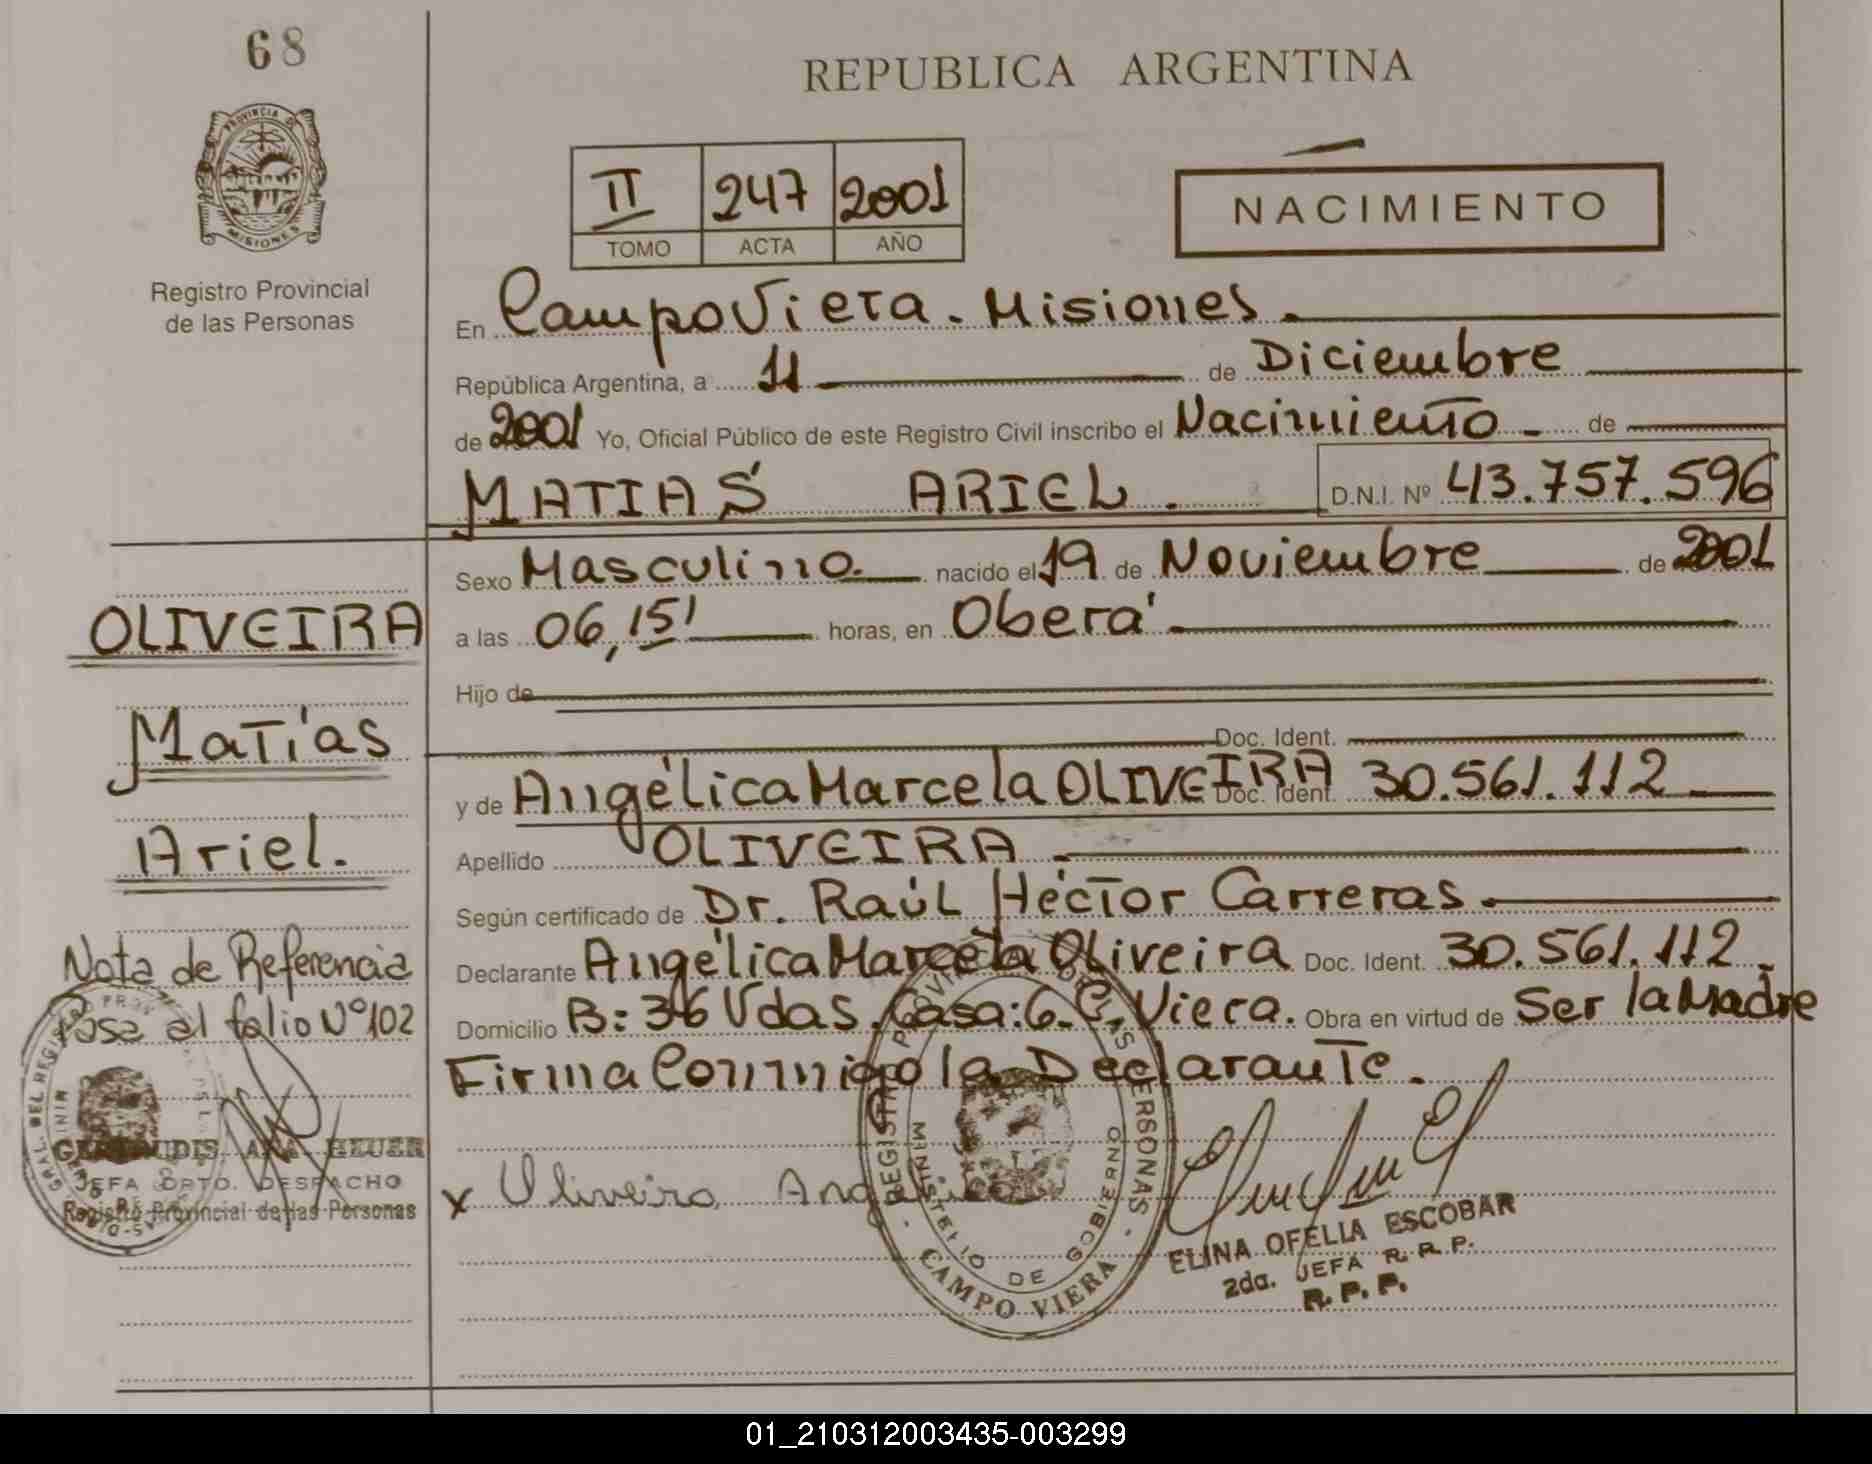 68
PROVINCIA D
MISIONES
Registro Provincial
de las Personas
REPUBLICA ARGENTINA
II 247 2001
TOMO ACTA AÑO
NACIMIENTO
En Campo Viera. Misiones.
República Argentina, a 11 de Diciembre
de 2001 Yo, Oficial Público de este Registro Civil inscribo el Nacimiento de
MATIAS ARIEL. D.N.I. Nº 43.757.596
Sexo Masculino. nacido el 19 de Noviembre de 2001
a las 06,15' horas, en Oberá
Hijo de
Doc. Ident.
y de Angélica Marcela OLIVEIRA Doc. Ident. 30.561.112
Apellido OLIVEIRA
Según certificado de Dr. Raúl Héctor Carreras
Declarante Angélica Marcela Oliveira Doc. Ident. 30.561.112
Domicilio B: 36 Vdas. Casa: 6. C. Viera. Obra en virtud de Ser la Madre
Firma Conmigo la Declarante.
x Oliveira Angelica
REGISTRO PROVINCIAL DE LAS PERSONAS
MINISTERIO DE GOBIERNO
CAMPO VIERA
ELINA OFELIA ESCOBAR
2da. JEFA R. R. P.
R. P. P.
OLIVEIRA
Matías
Ariel.
Nota de Referencia
Pasa al folio Nº 102
GERTRUDIS ANA HEUER
JEFA DPTO. DESPACHO
Registro Provincial de las Personas
01_210312003435-003299